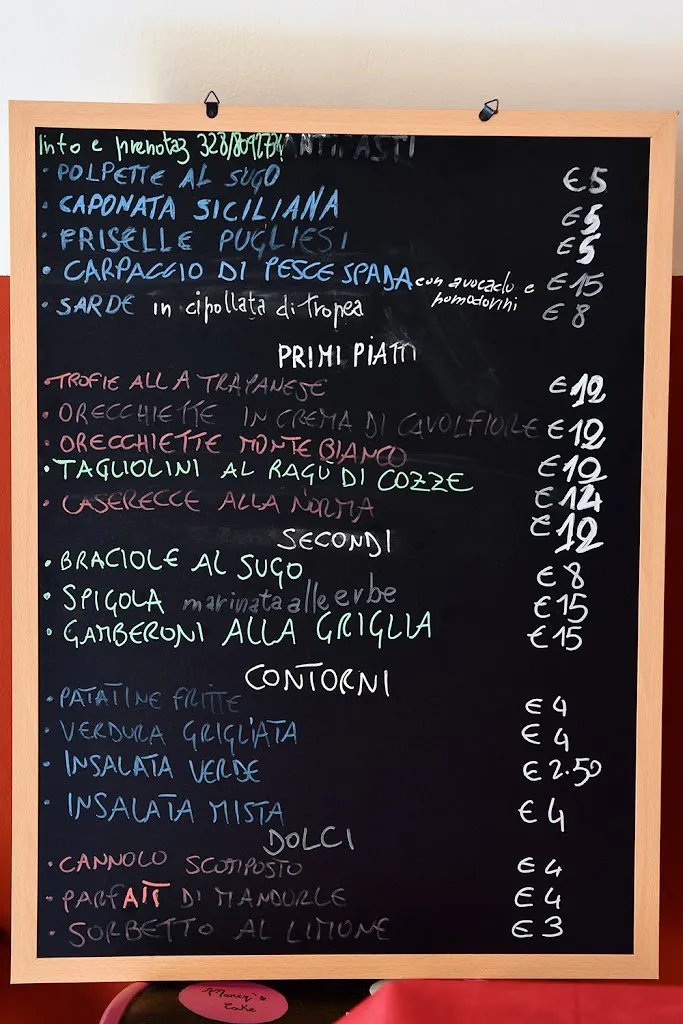 Info e prenotaz 328/8092724 ANTIPASTI
• POLPETTE AL SUGO €5
• CAPONATA SICILIANA €5
• FRISELLE PUGLIESI €5
• CARPACCIO DI PESCE SPADA con avocado e pomodorini €15
• SARDE in cipollata di tropea €8
PRIMI PIATTI
• TROFIE ALLA TRAPANESE €12
• ORECCHIETTE IN CREMA DI CAVOLFIORE €12
• ORECCHIETTE MONTE BIANCO €12
• TAGLIOLINI AL RAGÙ DI COZZE €14
• CASERECCE ALLA NORMA €12
SECONDI
• BRACIOLE AL SUGO €8
• SPIGOLA marinata alle erbe €15
• GAMBERONI ALLA GRIGLIA €15
CONTORNI
• PATATINE FRITTE €4
• VERDURA GRIGLIATA €4
• INSALATA VERDE €2.50
• INSALATA MISTA €4
DOLCI
• CANNOLO SCOMPOSTO €4
• PARFAIT DI MANDORLE €4
• SORBETTO AL LIMONE €3
Cake